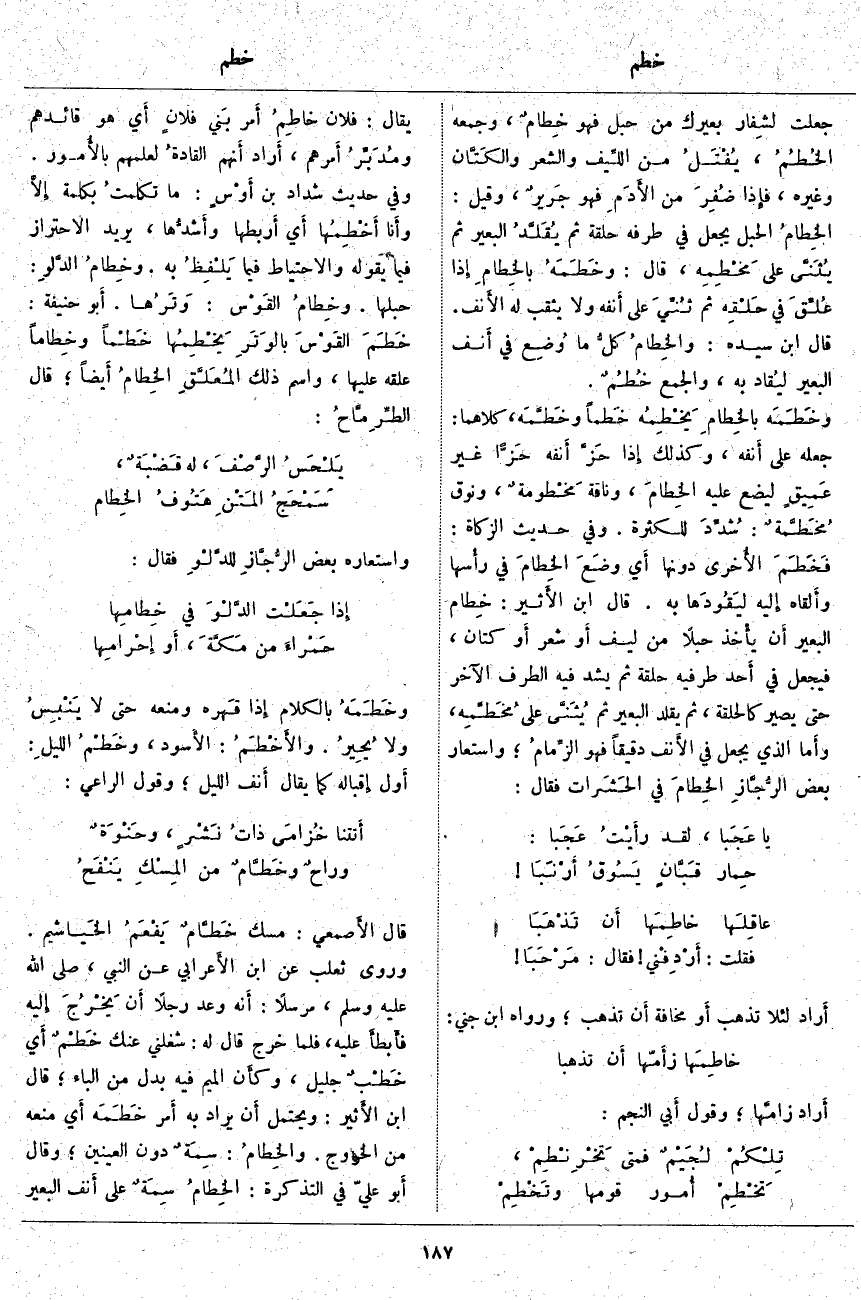 خطم
خطم
جعلت لشِفار بعيرك من حبل فهو خِطامٌ ، وجمعه
الخُطُمُ ، يُفْتَلُ من اللِّيف والشعر والكَتَّان
وغيره ، فإذا ضُفِرَ من الأَدَمِ فهو جَرِيرٌ ، وقيل :
الخِطامُ الحبل يجعل في طرفه حلقة ثم يُقَلَّدُ البعير ثم
يُثَنَّى على مَخْطِمِه ، قال : وخَطَمَهُ بالخِطامِ إذا
عُلِّقَ في حَلْقِه ثم ثُنِّيَ على أنفه ولا يثقب له الأنف.
قال ابن سيده : والخِطامُ كلُّ ما وُضِع في أنف
البعير ليُقاد به ، والجمع خُطُمٌ .
وخَطَمَه بالخِطامِ يَخْطِمُه خَطماً وخَطَّمَه ، كلاهما:
جعله على أنفه ، وكذلك إذا حَزَّ أنفه حَزًّا غير
عَمِيقٍ ليضع عليه الخِطامَ ، وناقة مَخْطومة ٌ ، ونوق
مُخَطَّمة ٌ : شُدِّدَ للكثرة . وفي حديث الزكاة :
فَخَطَمَ الأُخرى دونها أي وضَعَ الخِطامَ في رأسها
وألقاه إليه ليَقُودَها به . قال ابن الأَثير : خطام
البعير أن يأخذ حبلًا من ليف أو شعر أو كتان ،
فيجعل في أحد طرفيه حلقة ثم يشد فيه الطرف الآخر
حتى يصير كالحلقة ، ثم يقلد البعير ثم يُثَنَّى على مُخَطَّمِه،
وأما الذي يجعل في الأنف دقيقاً فهو الزِّمامُ ؛ واستعار
بعض الرُّجَّازِ الخِطامَ في الحَشَرات فقال :
يا عَجَبا ، لقد رأيْتُ عَجَبا :
حِمار قَبَّانٍ يَسُوقُ أَرْنَبَا !
عاقِلَها خاطِمَها أن تَذْهَبَا
فقلت : أَرْدِفْني! فقال : مَرْحَبَا!
أراد لئلا تذهب أو مخافة أن تذهب ؛ ورواه ابن جني:
خاطِمَها زأَمّها أن تذهبا
أراد زامَّها ؛ وقول أبي النجم :
تِلْكُمْ لُجَيْمٌ فمتى تَخْرَنْطِمْ ،
تَخْطِمْ أُمور قومها وتَخْطِمْ
يقال : فلان خاطِمُ أمر بَني فلانٍ أي هو قائدهم
ومُدَبِّرُ أمرهم ، أراد أنهم القادةُ لعلمهم بالأُمور .
وفي حديث شداد بن أوْسٍ : ما تكلمتُ بكلمة إلاَّ
وأنا أخْطِمُها أي أربطها وأشدُّها ، يريد الاحتراز
فيما يقوله والاحتياط فيما يَلْفِظُ به . وخطامُ الدَّلوِ:
حبلها . وخِطامُ القَوْسِ : وَتَرُها . أبو حنيفة :
خَطَمَ القَوْسَ بالوَتَرِ يَخْطِمُها خَطْماً وخِطاماً
علقه عليها ، واسم ذلك المُعَلَّقِ الخِطامُ أيضاً ؛ قال
الطِّرِمَّاحُ :
يَلْحَسُ الرَّصْفَ ، له قَضْبَة ٌ،
سَمْحَجُ المَتْنِ هَتُوفُ الخِطام
واستعاره بعض الرُّجَّازِ للدَّلْوِ فقال :
إذا جَعَلْت الدَّلْوَ في خِطامِها
حَمْراءَ من مَكَّةَ ، أو إحْرامِها
وخَطَمَهُ بالكلام إذا قَهَره ومنعه حتى لا يَنْبِسُ
ولا يُحِيرُ . والأَخْطَمُ : الأسود ، وخَطْمُ الليلِ :
أول إقباله كما يقال أنف الليل ؛ وقول الراعي :
أتتنا خُزامَى ذاتُ نَشْرٍ ، وحَنْوَة ٌ
وراحٌ وخَطَّامٌ من المِسْكِ يَنْفَحُ
قال الأَصمعي : مسك خَطَّامٌ يَفْعَمُ الخَياشيم .
وروى ثعلب عن ابن الأَعرابي عن النبي ، صلى الله
عليه وسلم ، مرسلًا : أنه وعد رجلًا أن يَخْرُجَ إليه
فأبطأ عليه ، فلما خرج قال له : شغلني عنك خَطْمٌ أي
خَطْبٌ جليل ، وكأن الميم فيه بدل من الباء ؛ قال
ابن الأَثير : ويحتمل أن يراد به أمر خَطَمَه أي منعه
من الخروج . والخِطامُ : سِمَة ٌ دون العينين ؛ وقال
أبو عليّ في التذكرة : الخِطامُ سِمَة ٌ على أنف البعير
١٨٧